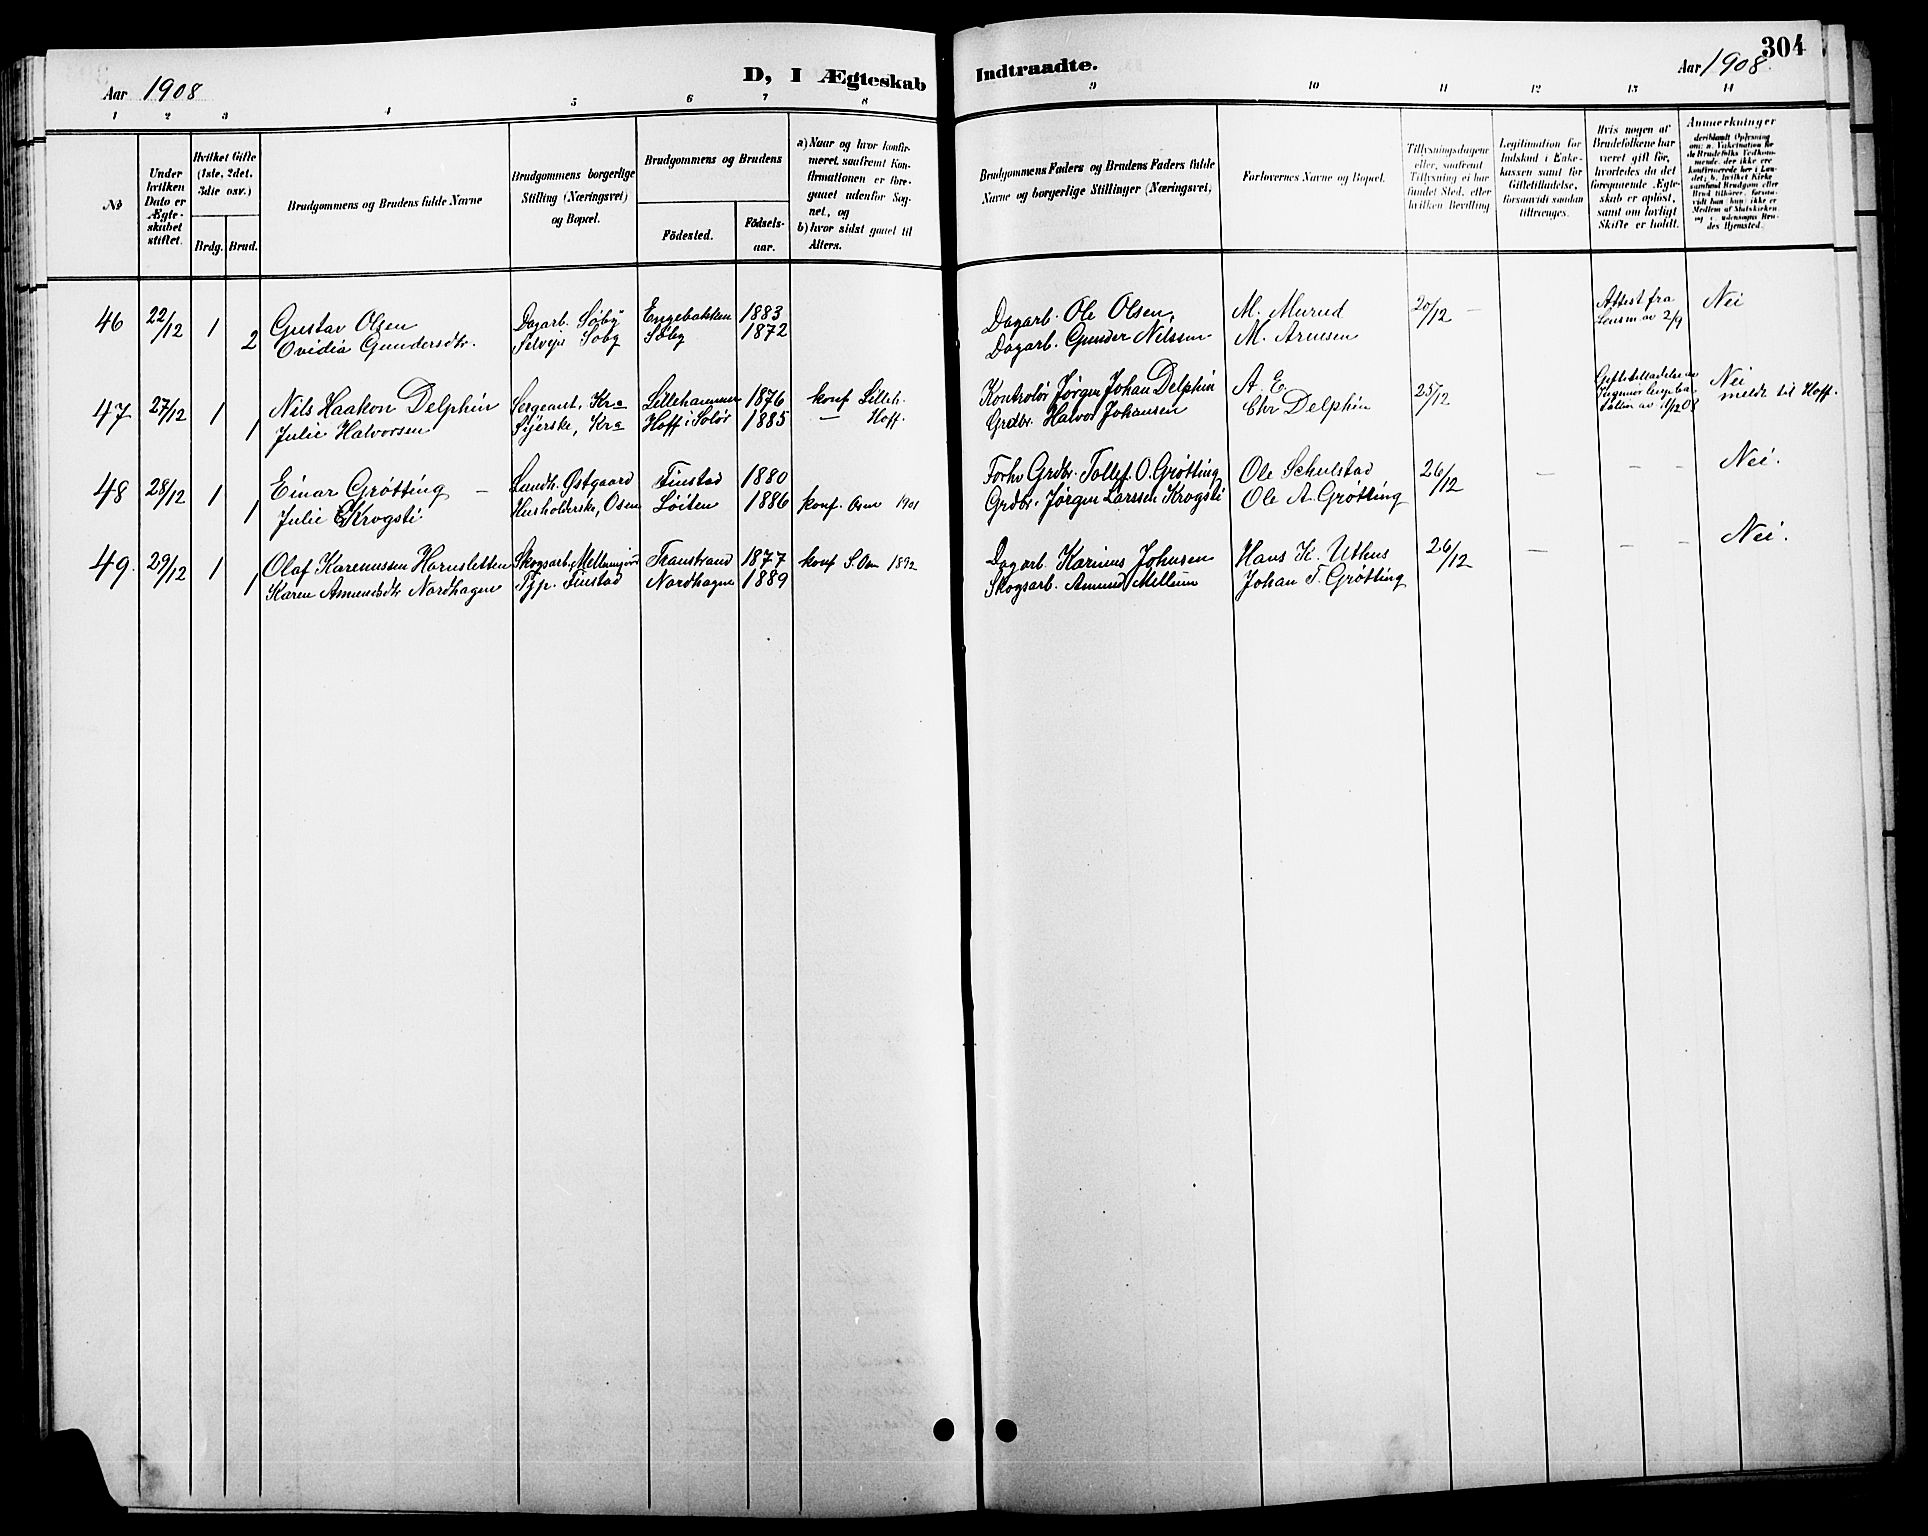 304
Aar 1908
D, I Ægteskab
Indtraadte.
Aar 1908.
1 2 3 4 5 6 7 8 9 10 11 12 13 14
No
Under hvilken Dato er Ægteskabet stiftet.
Hvilket Gifte (1ste, 2det, 3die osv.)
Brdg. Brud.
Brudgommens og Brudens fulde Navne
Brudgommens borgerlige Stilling (Næringsvei) og Bopæl.
Brudgommens og Brudens
Födested.
Födselsaar.
a) Naar og hvor konfirmeret, saafremt Konfirmationen er foregaaet udenfor Sognet, og
b) hvor sidst gaaet til Alters.
Brudgommens Faders og Brudens Faders fulde Navne og borgerlige Stillinger (Næringsvei)
Forlovernes Navne og Bopæl.
Tillysningsdagene eller, saafremt Tillysning ei har fundet Sted, efter hvilken Bevilling
Legitimation for Indskud i Enkekassen samt for Giftetilladelse, forsaavidt saadan tiltrænges.
Hvis nogen af Brudefolkene har været gift før, hvorledes da det foregaaende Ægteskab er opløst, samt om lovligt Skifte er holdt.
Anmerkninger
46 22/12 1 Gustav Olsen Dagarb. Søby Engebakken 1883 Dagarb. Ole Olsen, M. Murud 20/12 — Attest fra Nei
2 Ovidia Gundersdtr. Selvejr Søby Søby 1872 Dagarb. Gunder Nilssen M. Arnesen Lensm av 2/9
47 27/12 1 Nils Haakon Delphin Sergeant, Kra Lillehammer 1876 konf Lilleh. Kontrolør Jørgen Johan Delphin A. E. 25/12 Giftetilladelse av Nei
1 Julie Halvorsen Syerske, Kra Hoff i Solør 1885 — Hoff. Grdbr. Halvor Johansen Chr Delphin av 11/12 08 meldt til Hoff.
48 28/12 1 Einar Grøtting — Landh. Østgaard Finstad 1880 Forhv Grdbr. Tollef O. Grøtting Ole Schulstad 26/12 — — — Nei.
1 Julie Krogsti Husholderske, Osen Løiten 1886 konf. Osen 1901 Grdbr. Jørgen Larssen Krogsti Ole A. Grøtting
49. 29/12 1 Olaf Karenussen Hornsletten Skogsarb. Transtrand 1877 konf S. Osen 1892 Dagarb. Karinus Johnsen Hans K. Uthus 26/12 — — — Nei.
1 Karen Amundsdtr Nordhagen Tjp. Finstad Nordhagen 1889 Skogsarb. Amund Mellum Johan T. Grøtting